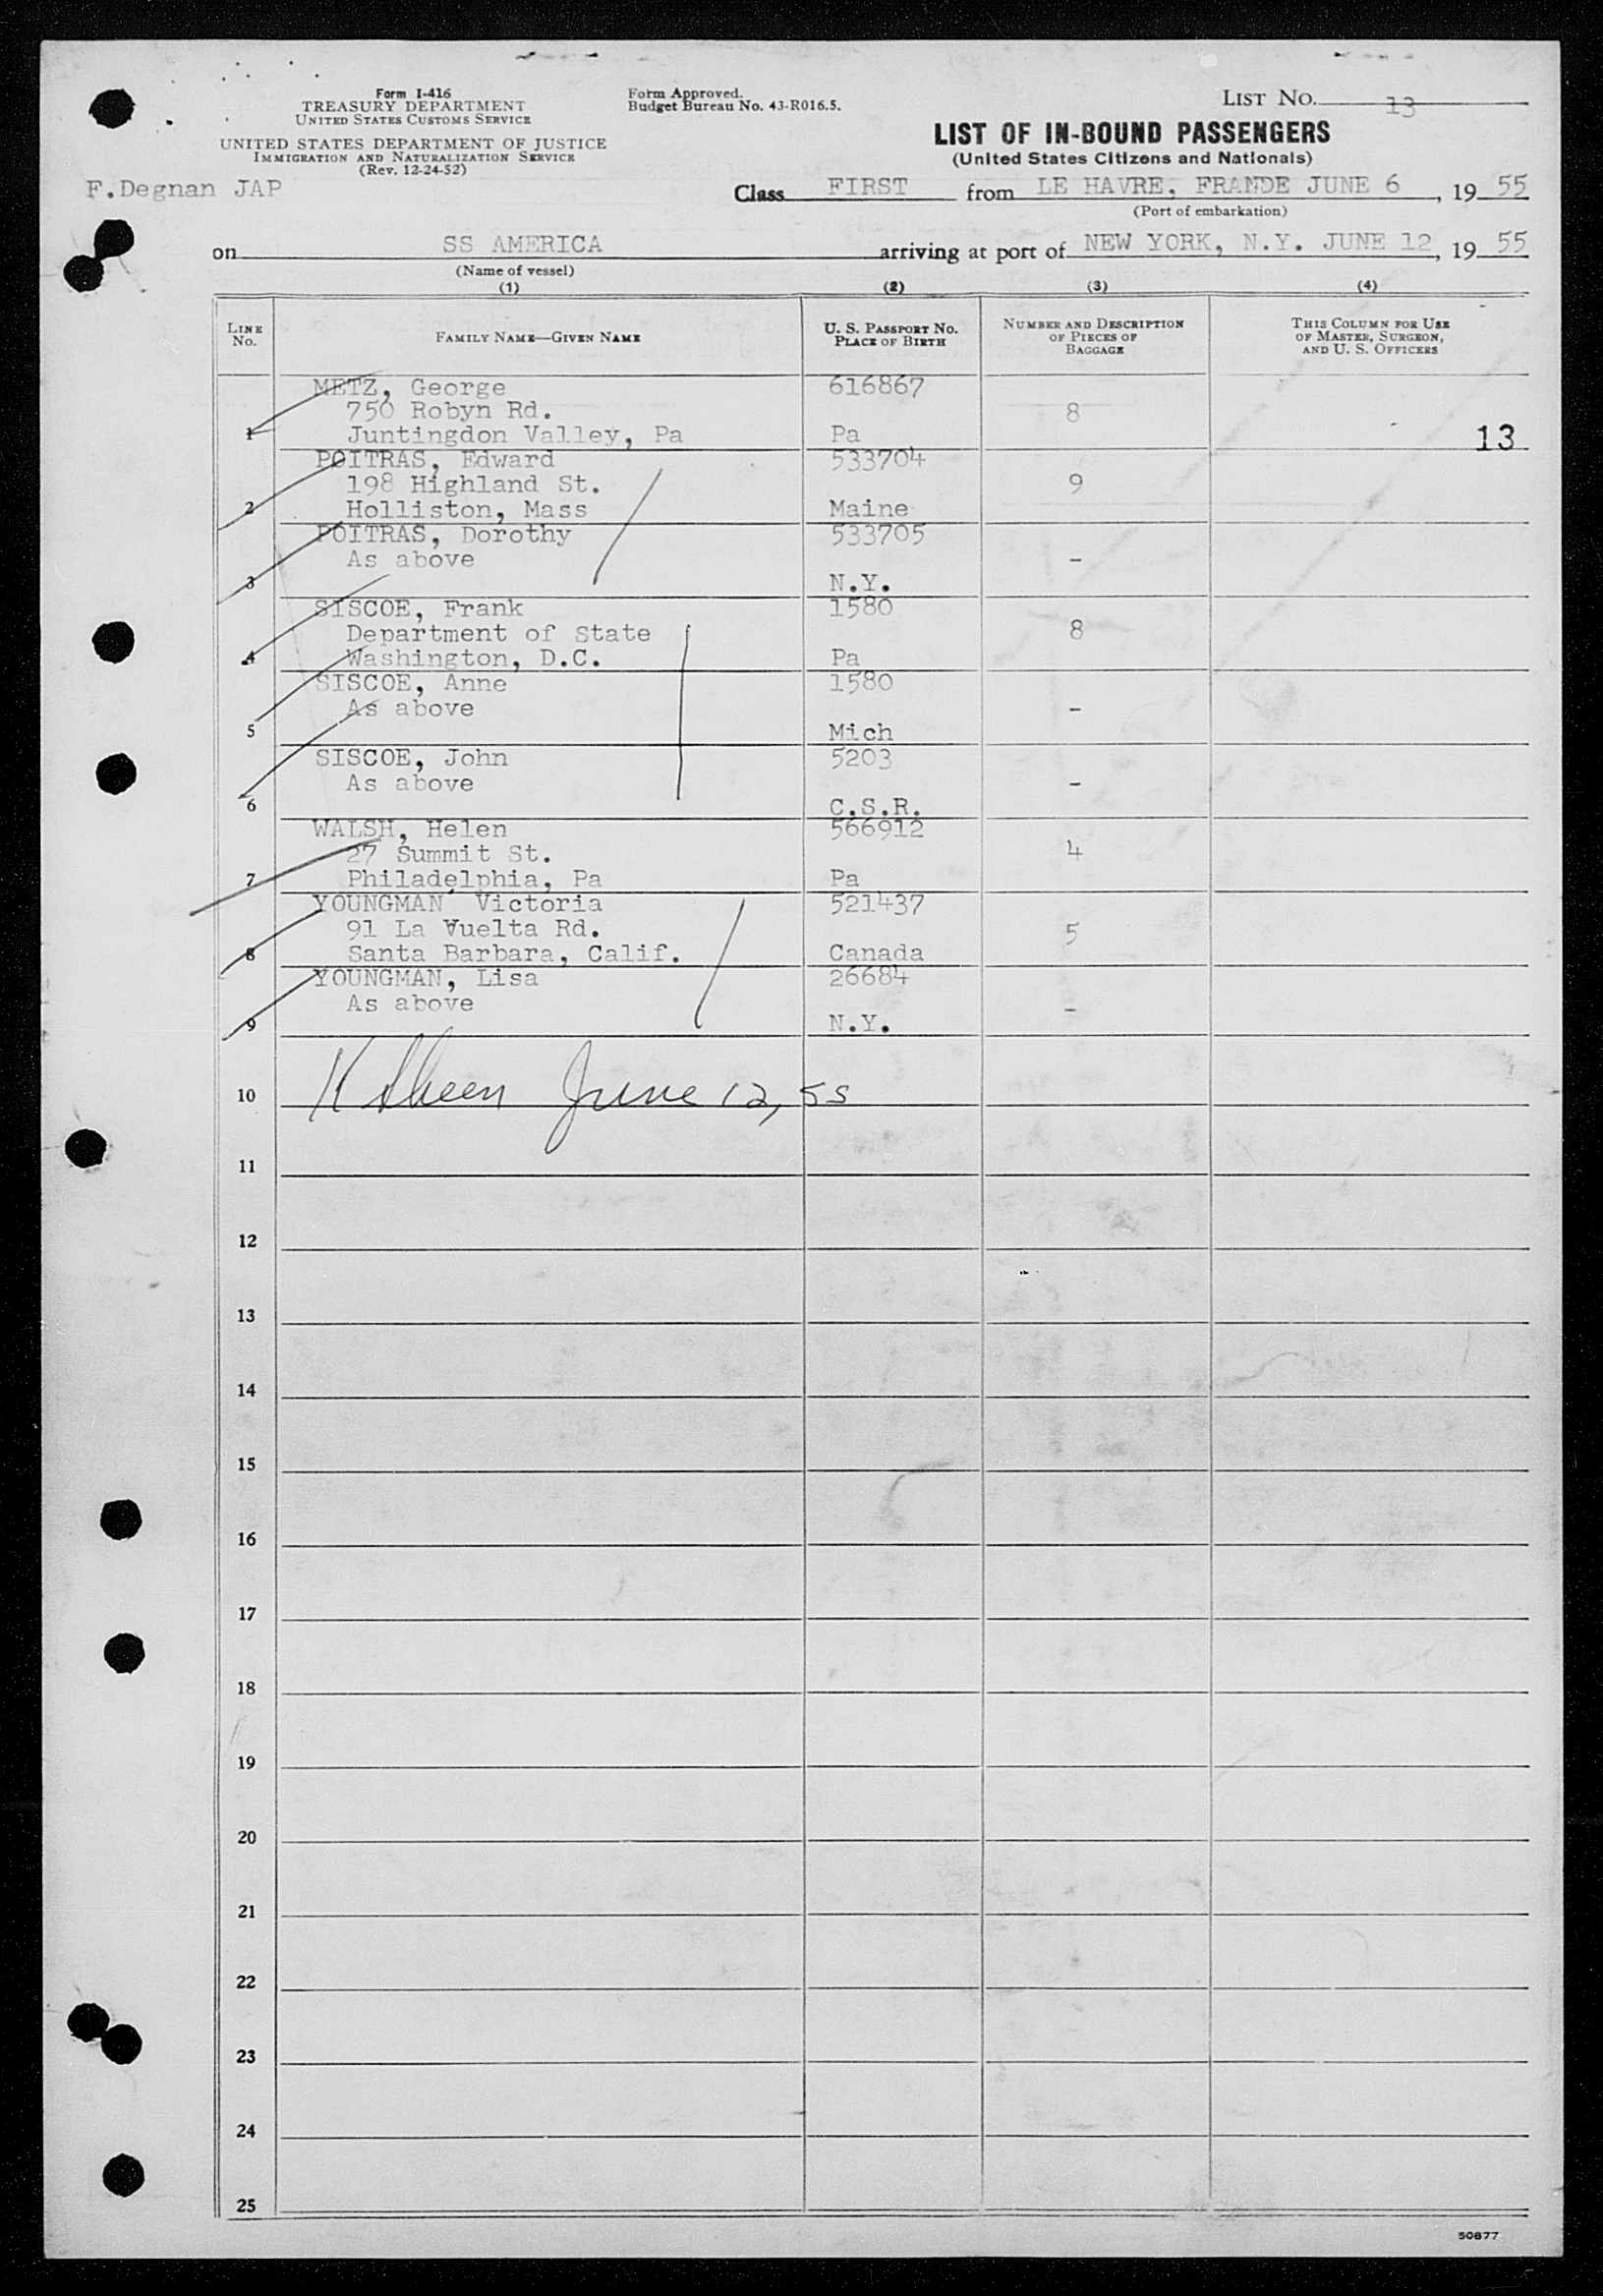 Form I-416
TREASURY DEPARTMENT
UNITED STATES CUSTOMS SERVICE
UNITED STATES DEPARTMENT OF JUSTICE
IMMIGRATION AND NATURALIZATION SERVICE
(Rev. 12-24-52)
Form Approved.
Budget Bureau No. 43-R016.5.
LIST NO. 13
LIST OF IN-BOUND PASSENGERS
(United States Citizens and Nationals)
F.Degnan JAP
Class FIRST from LE HAVRE, FRANDE JUNE 6, 1955
(Port of embarkation)
on SS AMERICA arriving at port of NEW YORK, N.Y. JUNE 12, 1955
(Name of vessel)
(1) (2) (3) (4)
LINE NO. FAMILY NAME—GIVEN NAME U. S. PASSPORT NO. PLACE OF BIRTH NUMBER AND DESCRIPTION OF PIECES OF BAGGAGE THIS COLUMN FOR USE OF MASTER, SURGEON, AND U. S. OFFICERS
METZ, George 616867
750 Robyn Rd. 8
1 Juntingdon Valley, Pa Pa 13
POITRAS, Edward 533704
198 Highland St. 9
2 Holliston, Mass Maine
POITRAS, Dorothy 533705
As above -
3 N.Y.
SISCOE, Frank 1580
Department of State 8
4 Washington, D.C. Pa
SISCOE, Anne 1580
As above -
5 Mich
SISCOE, John 5203
As above -
6 C.S.R.
WALSH, Helen 566912
27 Summit St. 4
7 Philadelphia, Pa Pa
YOUNGMAN Victoria 521437
91 La Vuelta Rd. 5
8 Santa Barbara, Calif. Canada
YOUNGMAN, Lisa 26684
As above -
9 N.Y.
10 June 12, 55
11
12
13
14
15
16
17
18
19
20
21
22
23
24
25
50877